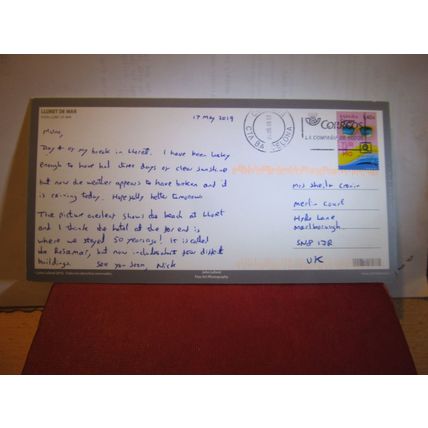 LLORET DE MAR
17 May 2019
Mum,
Day 4 of my break in Lloret. I have been lucky
enough to have had three days of clear sunshine
but now the weather appears to have broken and it
is raining today. Hopefully better tomorrow
The picture overleaf shows the beach at Lloret
and I think the hotel at the far end is
where we stayed 50 years ago! It is called
the Rosamar, but now includes four different
buildings. See you soon, Nick
Correos
ESPAÑA
Mrs Sheila
Merlin Court
Hyde Lane
Marlborough
SN8 1JR
UK
John Lalford
Fine Art Photography